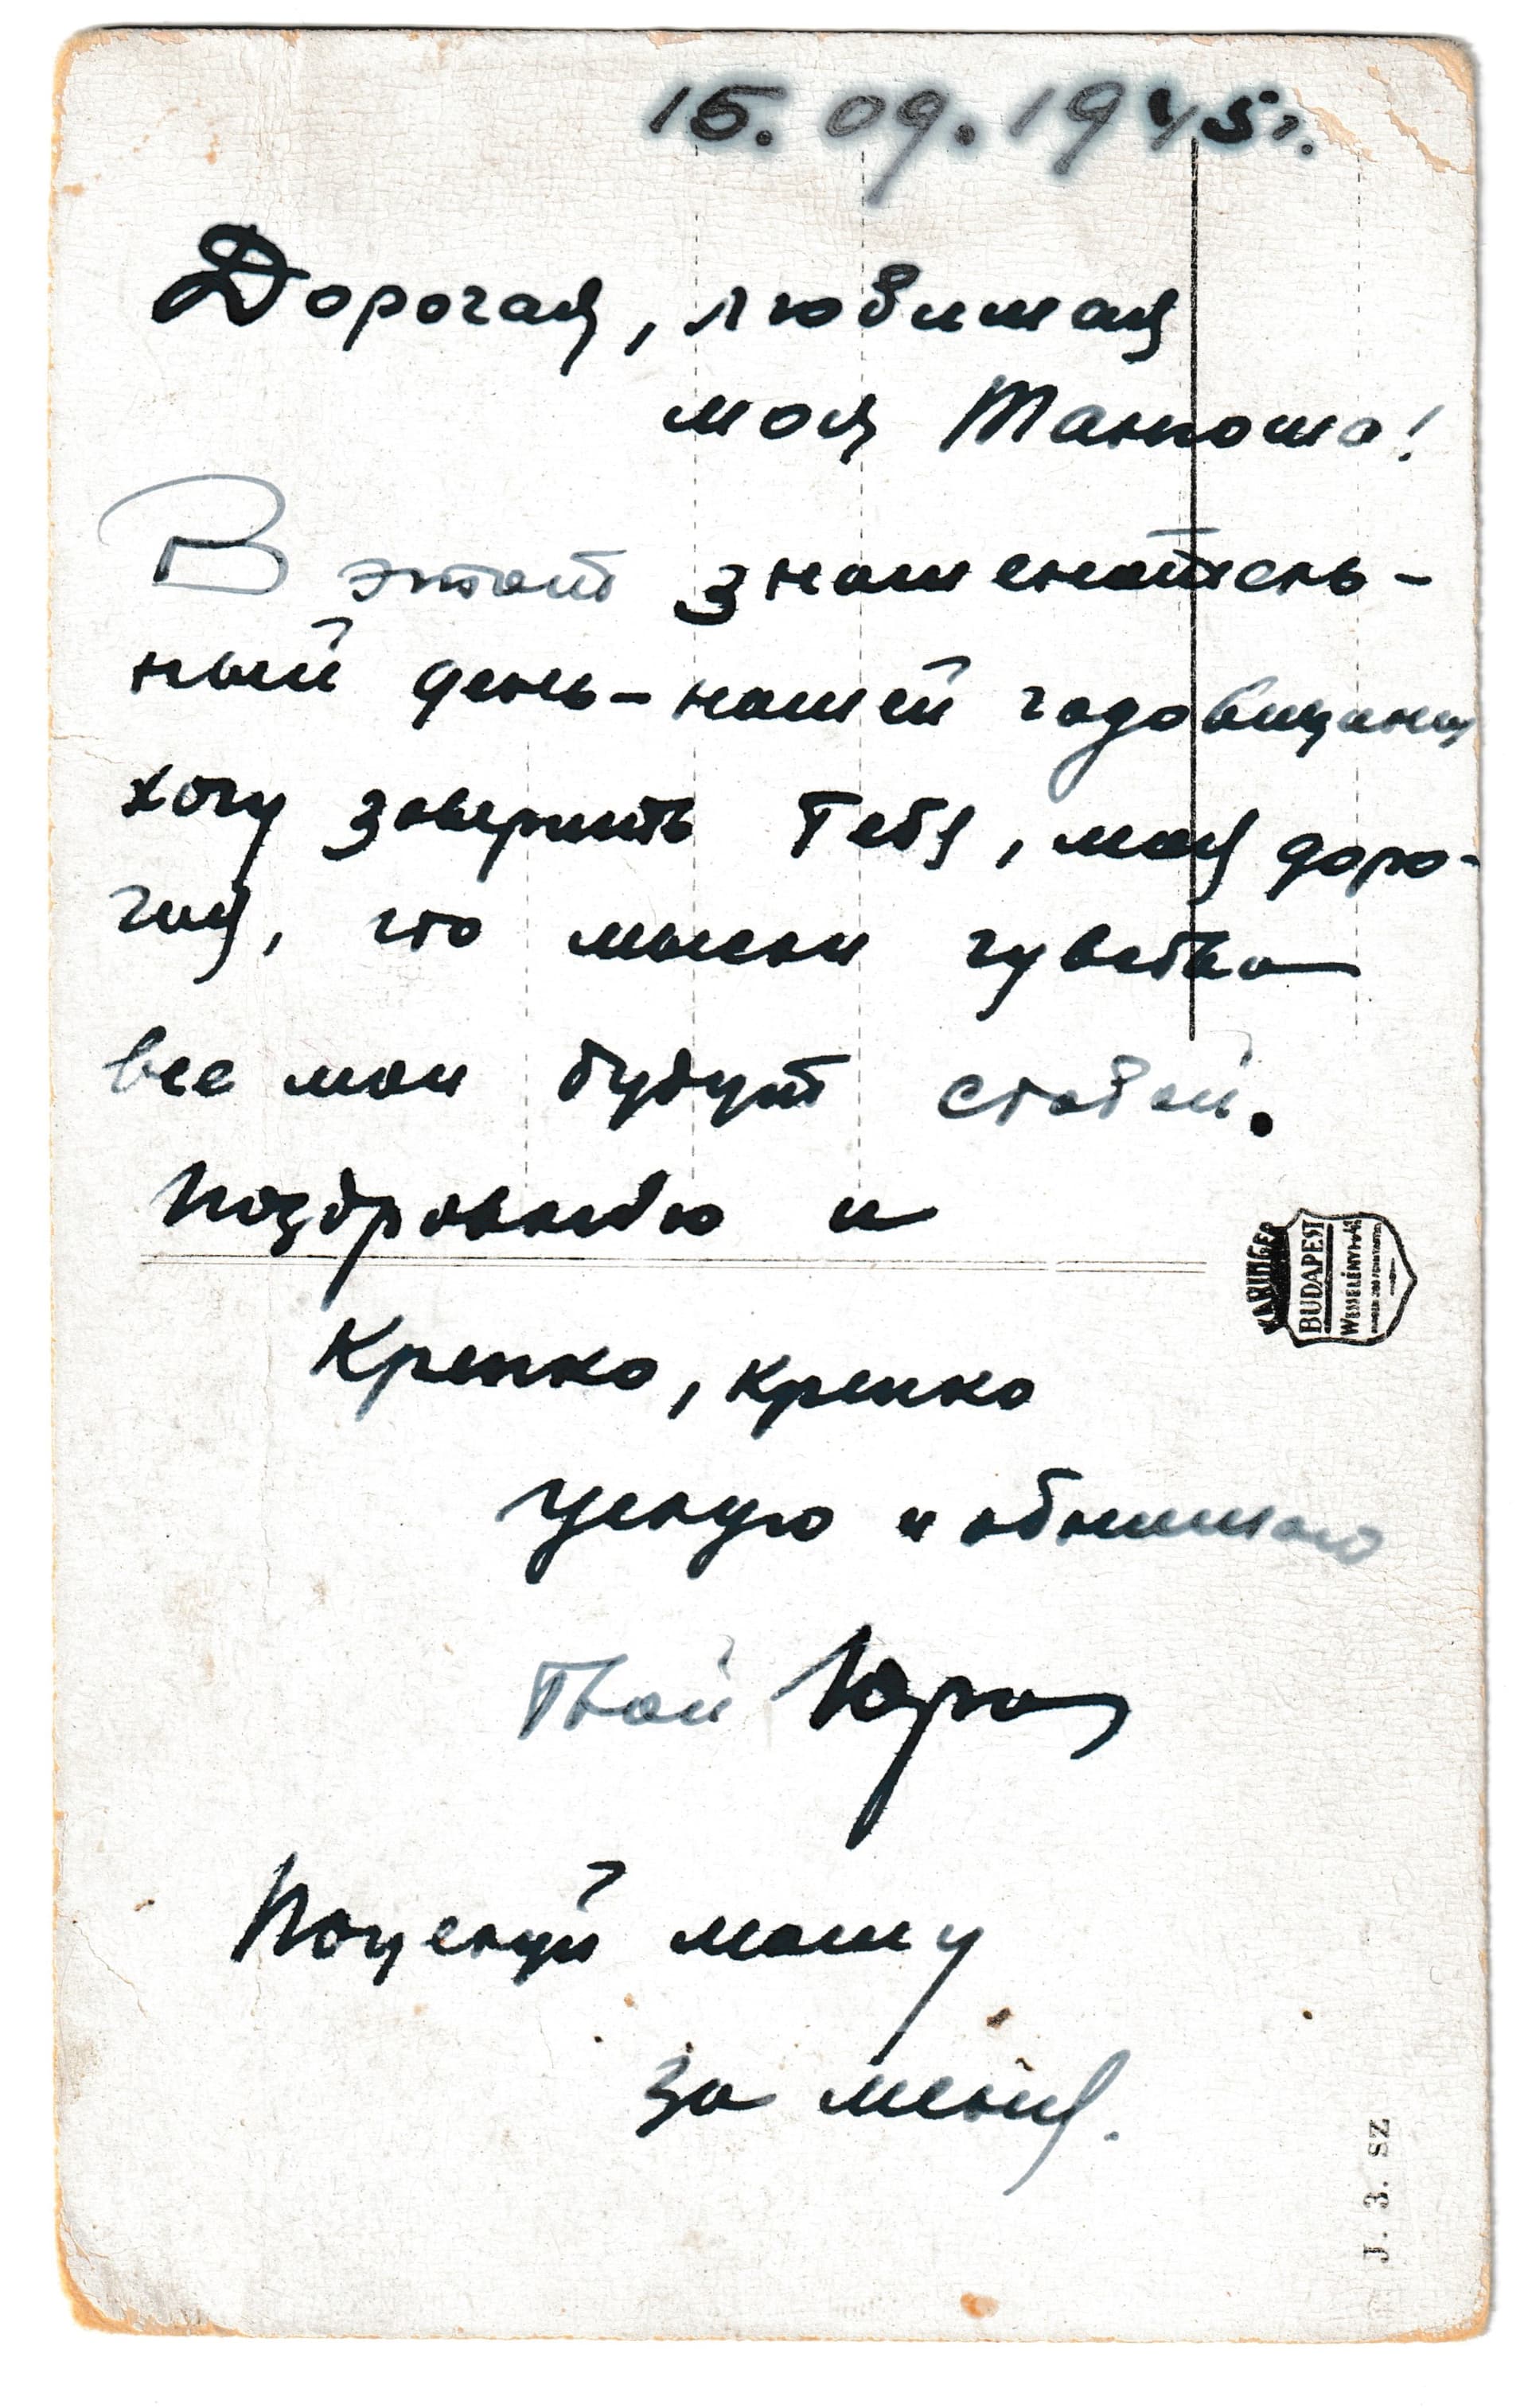 15.09.1945г.
Дорогая, любимая
моя Танюша!
В этот знаменатель-
ный день - нашей годовщины
хочу заверить Тебя, моя доро-
гая, что мысли чувства
все мои будут с тобой.
Поздравляю и
Крепко, крепко
целую и обнимаю
Твой Юра
Поцелуй маму
за меня.
KARINGER
BUDAPEST
WESSELÉNYI-U.
J. 3. SZ